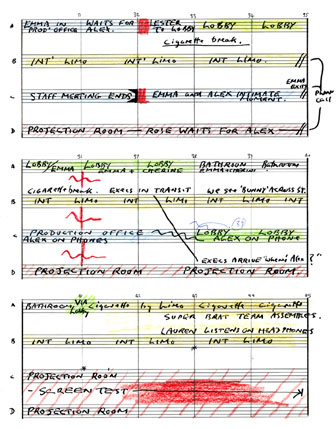 31 32 33 34 35
A EMMA IN WAITS FOR LESTER LOBBY LOBBY
PROD OFFICE ALEX. TO LOBBY
Cigarette break.
B INT' LIMO INT' LIMO INT LIMO.
EMMA EXITS
C STAFF MEETING ENDS EMMA AND ALEX INTIMATE MOMENT.
D PROJECTION ROOM — ROSE WAITS FOR ALEX —
PHONE CALL
36 37 38 39
A LOBBY/ LOBBY LOBBY BATHROOM BATHROOM
EMMA EMMA + CHERINE EMMA+CHERINE
cigarette break. EXECS IN TRANSIT we see 'BUNNY' ACROSS ST.
B INT LIMO INT LIMO INT LIMO INT
C PRODUCTION OFFICE LOBBY LOBBY
ALEX ON PHONES ALEX ON PHONE
EXECS ARRIVE "where's Alex?"
D PROJECTION ROOM PROJECTION ROOM
41 42 43 44 45
A BATHROOM VIA Lobby Cigarette by Limo Cigarette Cigarette
SUPER BRAT TEAM ASSEMBLES.
LAUREN LISTENS ON HEADPHONES
B INT LIMO INT LIMO INT LIMO INT LIMO
C PROJECTION ROOM
- SCREEN TEST
D PROJECTION ROOM